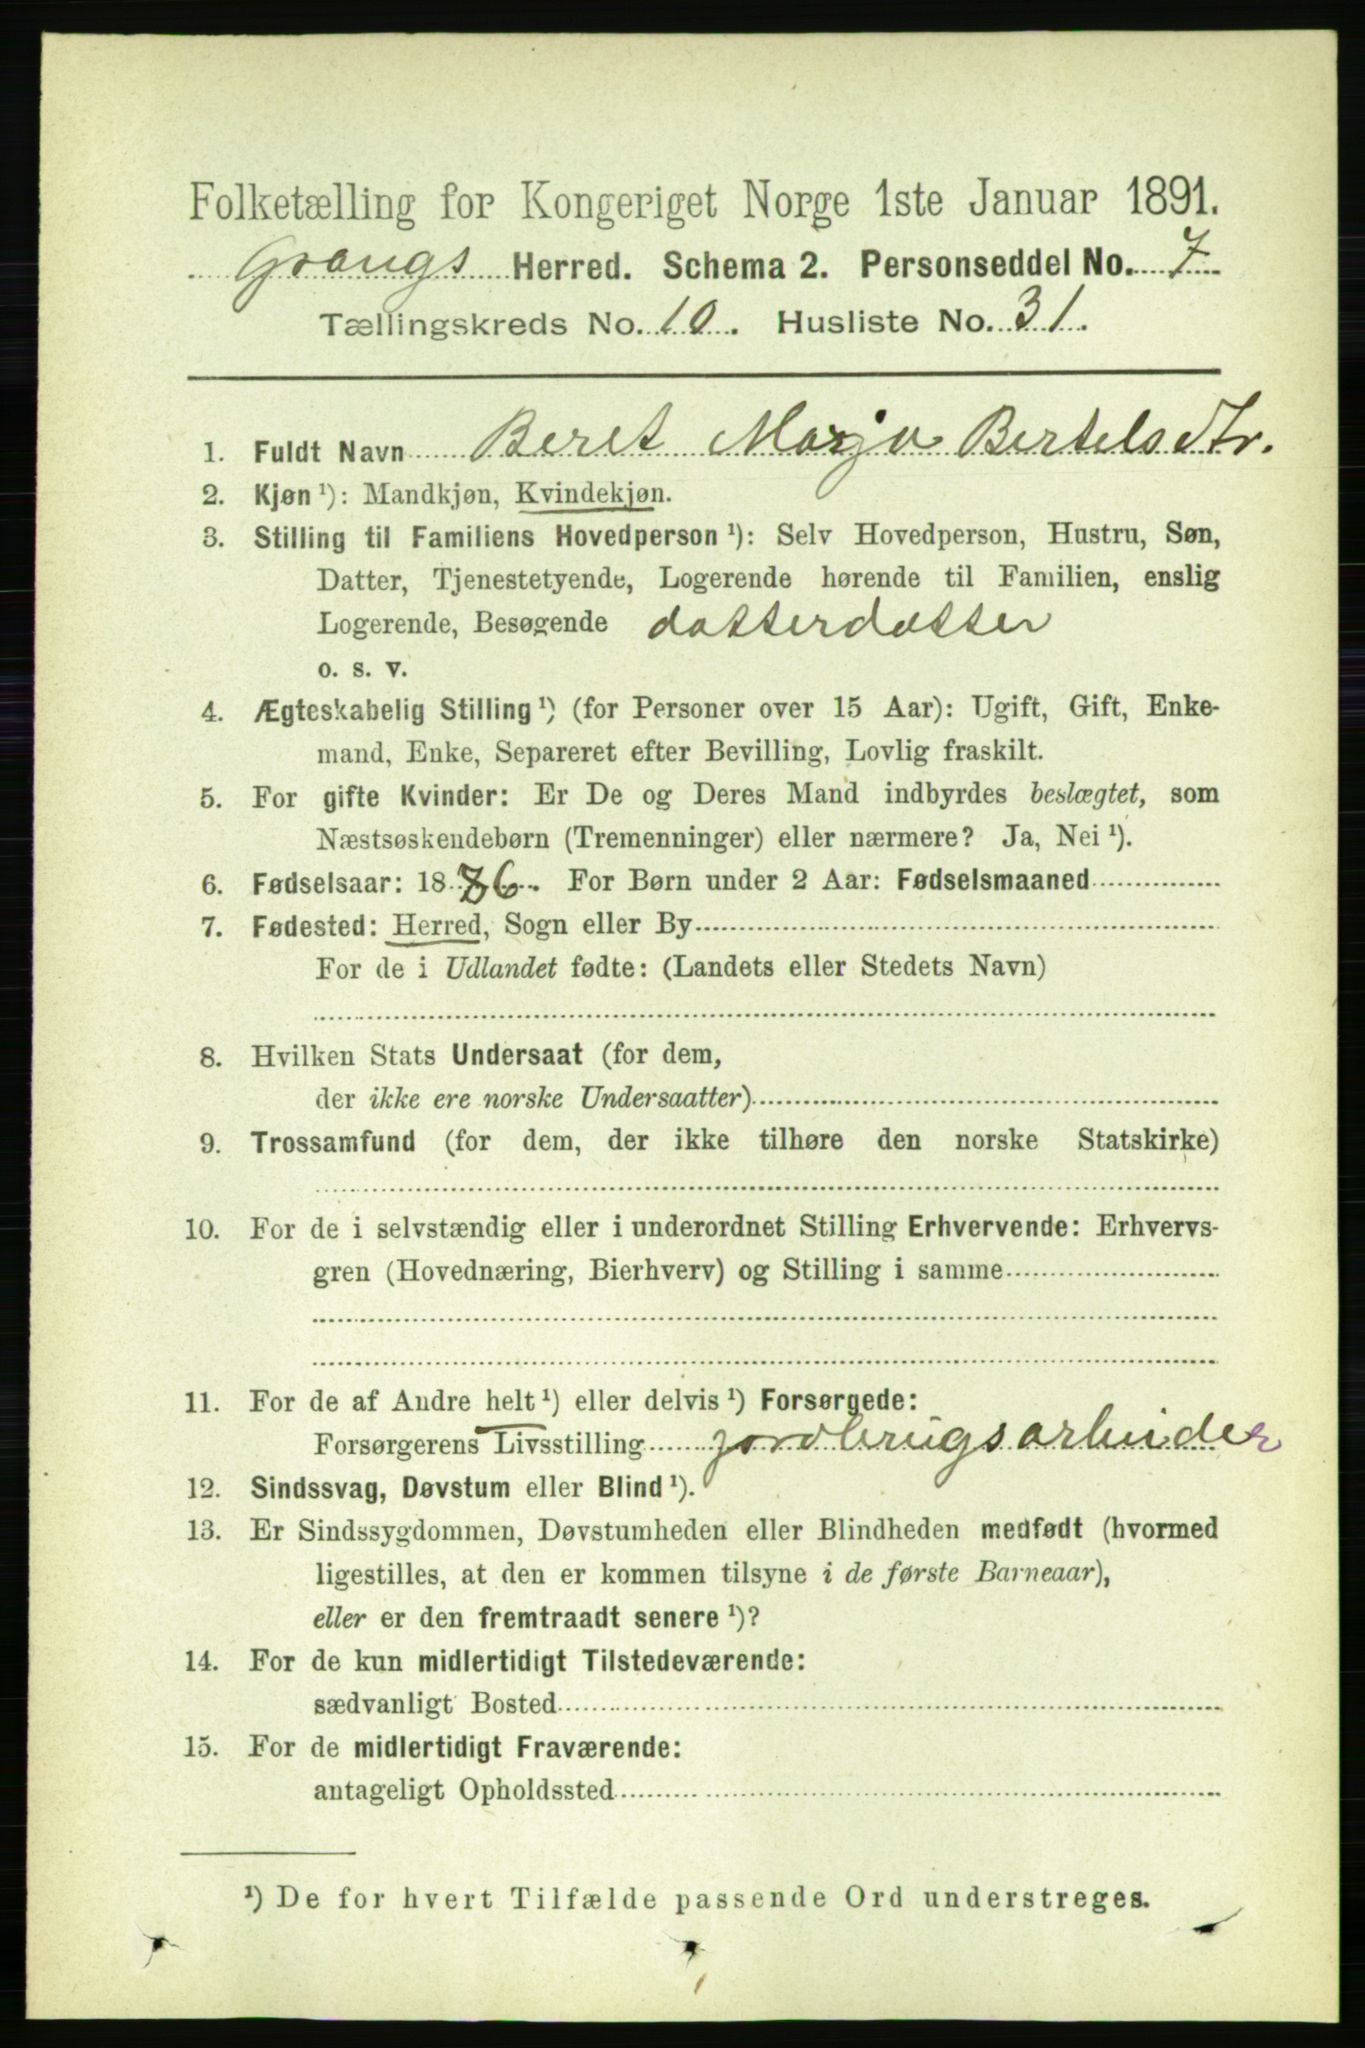 Folketælling for Kongeriget Norge 1ste Januar 1891.
Grongs Herred. Schema 2. Personseddel No. 7
Tællingskreds No. 10. Husliste No. 31.
1. Fuldt Navn Beret Marja Bertelsdtr.
2. Kjøn ¹): Mandkjøn, Kvindekjøn.
3. Stilling til Familiens Hovedperson ¹): Selv Hovedperson, Hustru, Søn,
Datter, Tjenestetyende, Logerende hørende til Familien, enslig
Logerende, Besøgende datterdatter
o. s. v.
4. Ægteskabelig Stilling ¹) (for Personer over 15 Aar): Ugift, Gift, Enke-
mand, Enke, Separeret efter Bevilling, Lovlig fraskilt.
5. For gifte Kvinder: Er De og Deres Mand indbyrdes beslægtet, som
Næstsøskendebørn (Tremenninger) eller nærmere? Ja, Nei ¹).
6. Fødselsaar: 1886. For Børn under 2 Aar: Fødselsmaaned
7. Fødested: Herred, Sogn eller By
For de i Udlandet fødte: (Landets eller Stedets Navn)
8. Hvilken Stats Undersaat (for dem,
der ikke ere norske Undersaatter)
9. Trossamfund (for dem, der ikke tilhøre den norske Statskirke)
10. For de i selvstændig eller i underordnet Stilling Erhvervende: Erhvervs-
gren (Hovednæring, Bierhverv) og Stilling i samme
11. For de af Andre helt ¹) eller delvis ¹) Forsørgede:
Forsørgerens Livsstilling jordbrugsarbeider
12. Sindssvag, Døvstum eller Blind ¹).
13. Er Sindssygdommen, Døvstumheden eller Blindheden medfødt (hvormed
ligestilles, at den er kommen tilsyne i de første Barneaar),
eller er den fremtraadt senere ¹)?
14. For de kun midlertidigt Tilstedeværende:
sædvanligt Bosted
15. For de midlertidigt Fraværende:
antageligt Opholdssted
¹) De for hvert Tilfælde passende Ord understreges.